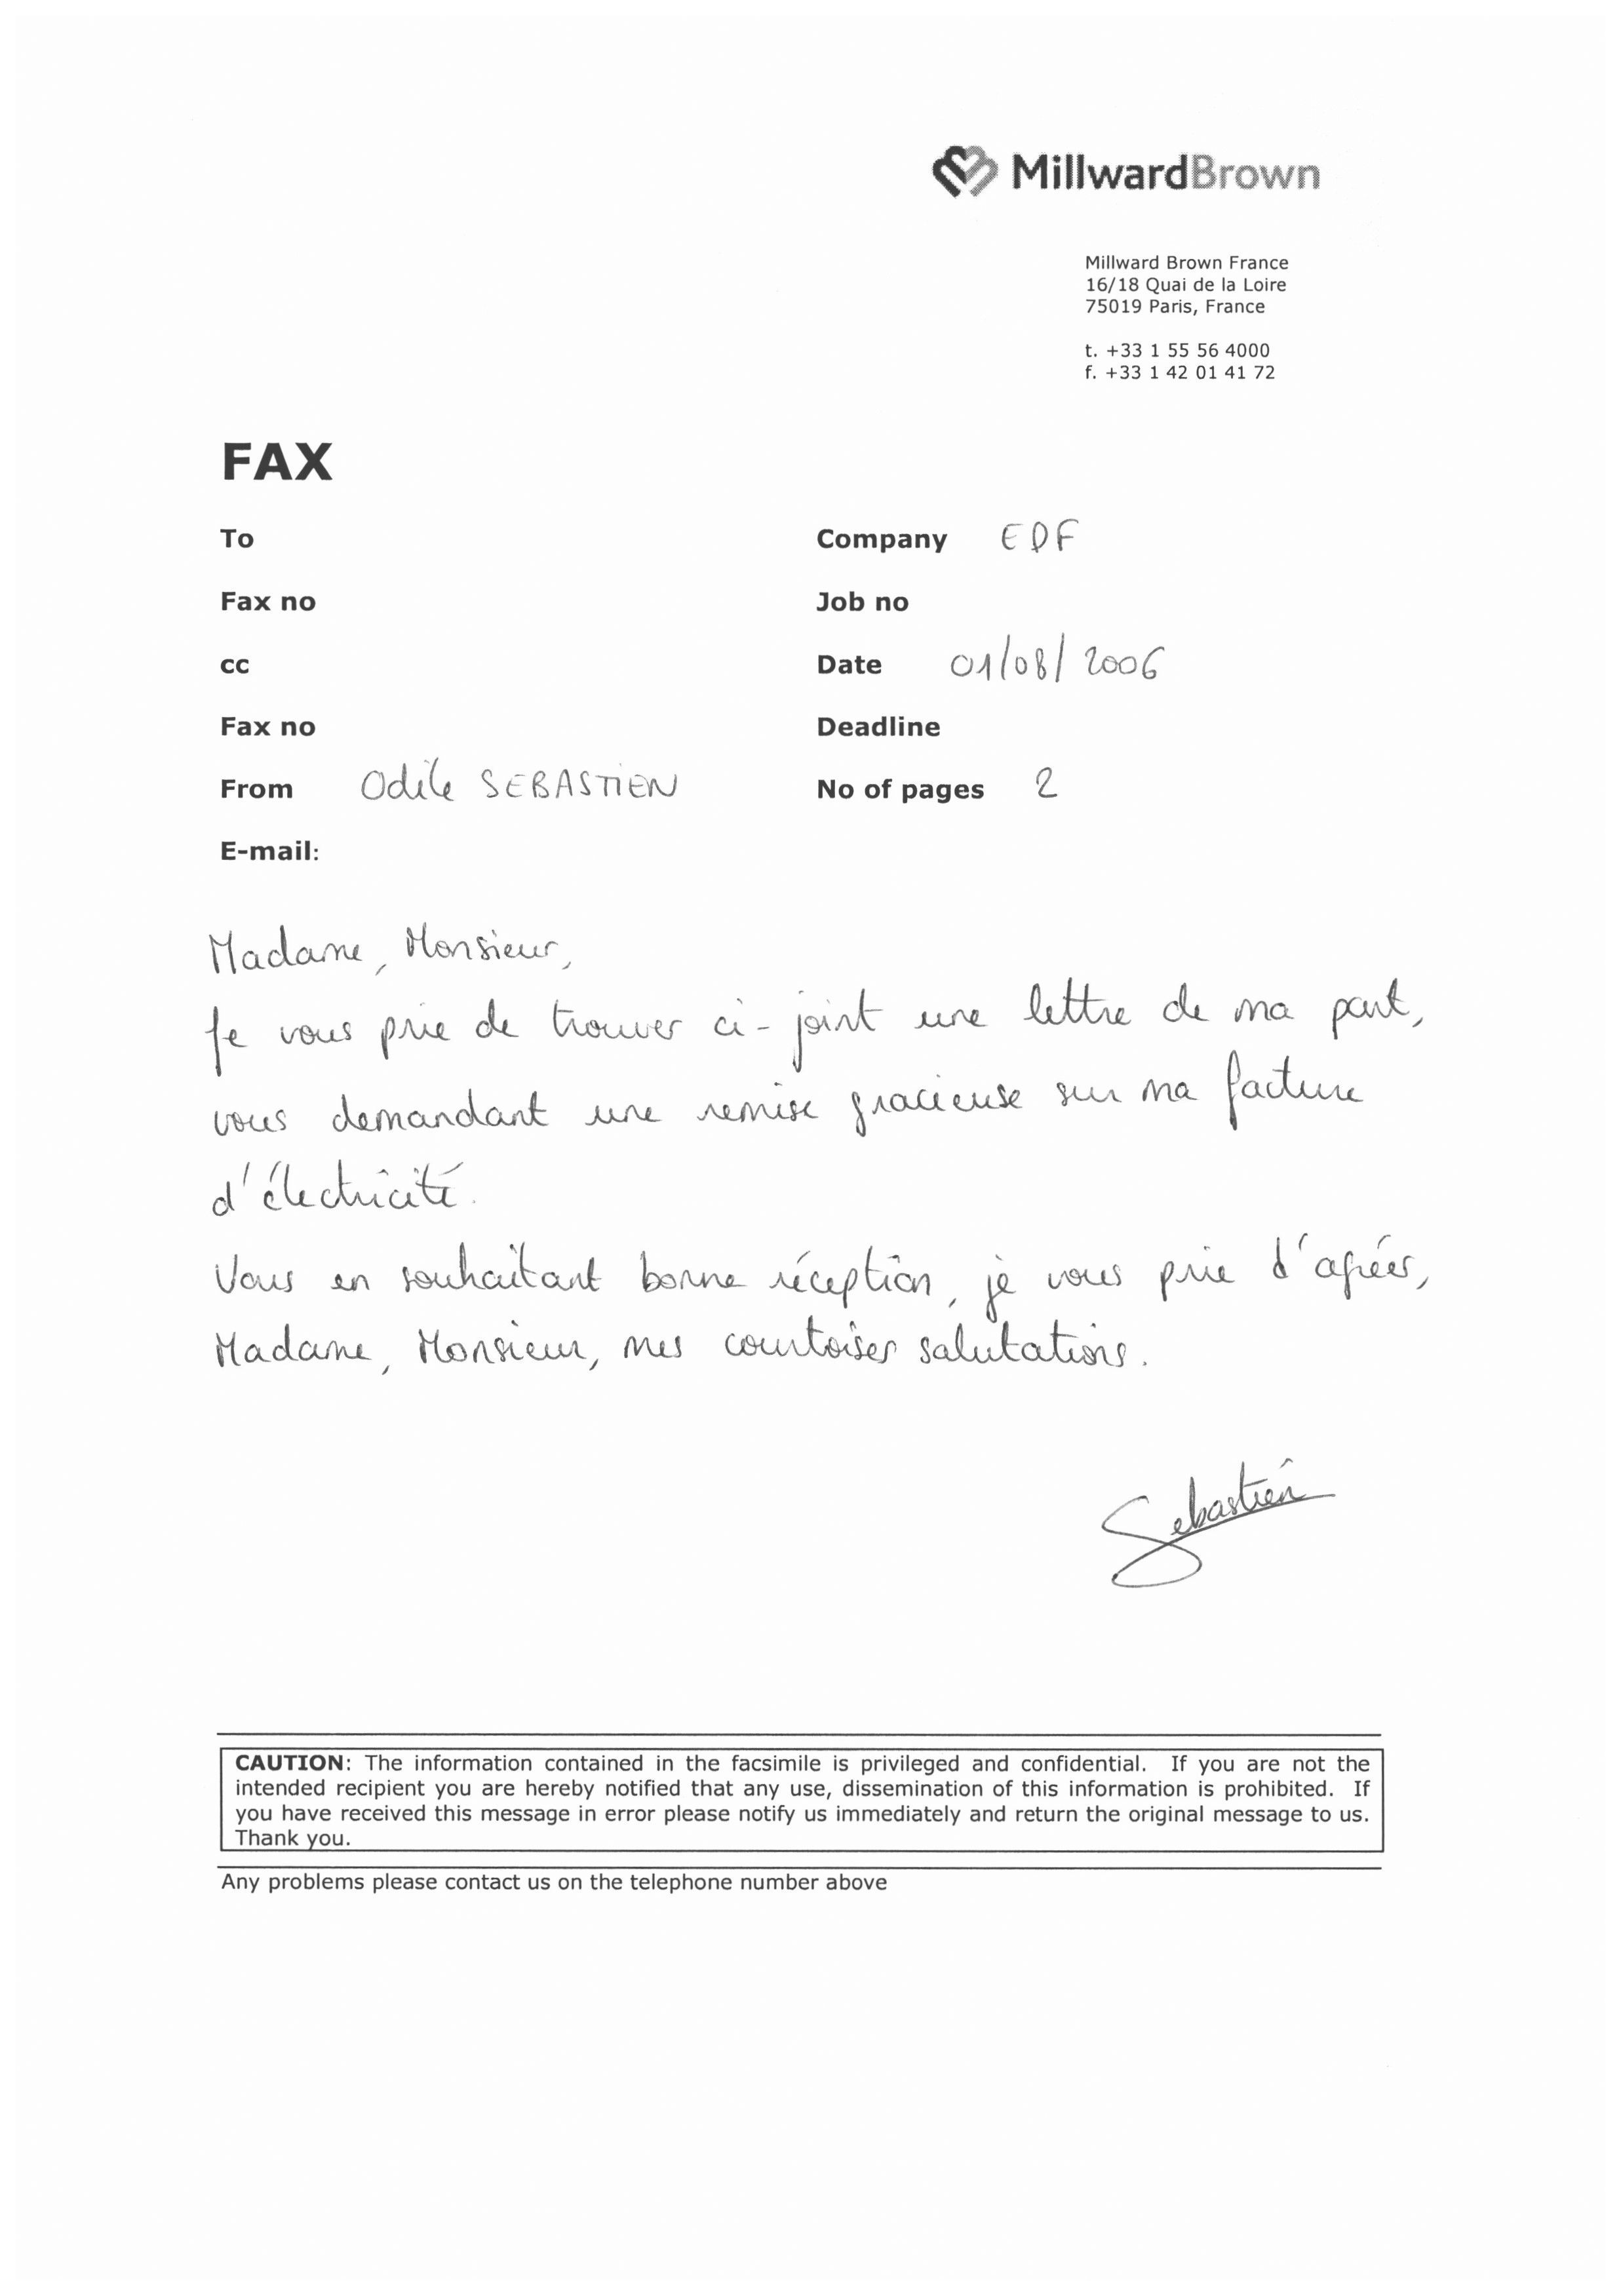 MillwardBrown
Millward Brown France
16/18 Quai de la Loire
75019 Paris, France
t. +33 1 55 56 4000
f. +33 1 42 01 41 72
FAX
To
Company EDF
Fax no
Job no
cc
Date 01/08/2006
Fax no
Deadline
From Odile SEBASTIEN
No of pages 2
E-mail:
Madame, Monsieur,
Je vous prie de trouver ci-joint une lettre de ma part,
vous demandant une remise gracieuse sur ma facture
d'électricité.
Vous en souhaitant bonne réception, je vous prie d'agréer,
Madame, Monsieur, mes courtoises salutations.
Sebastien
CAUTION: The information contained in the facsimile is privileged and confidential. If you are not the
intended recipient you are hereby notified that any use, dissemination of this information is prohibited. If
you have received this message in error please notify us immediately and return the original message to us.
Thank you.
Any problems please contact us on the telephone number above